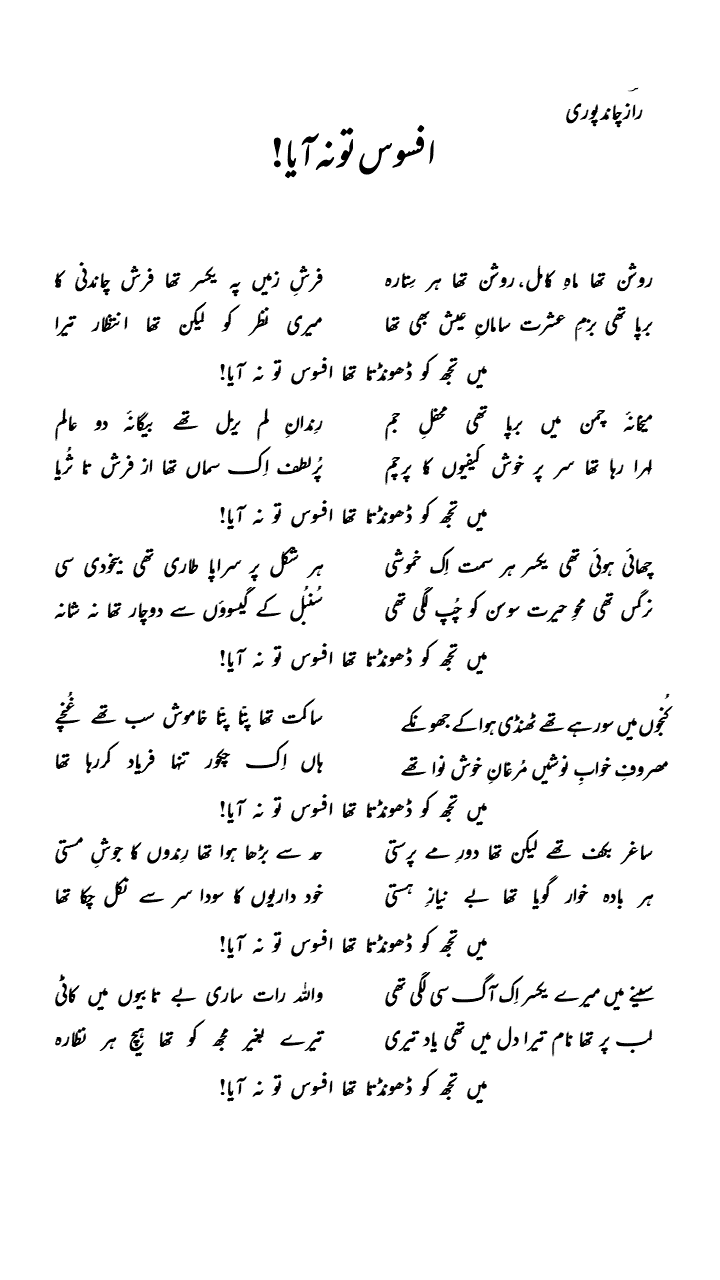 راز چاند پوری
افسوس تو نہ آیا!
روشن تھا ماہِ کامل، روشن تھا ہر ستارہ فرشِ زمیں پہ یکسر تھا فرش چاندنی کا
برپا تھی بزمِ عشرت سامانِ عیش بھی تھا میری نظر کو لیکن تھا انتظار تیرا
میں تجھ کو ڈھونڈتا تھا افسوس تو نہ آیا!
میخانۂ چمن میں برپا تھی محفلِ جم رِندانِ لم یزل تھے بیگانۂ دو عالم
لہرا رہا تھا سر پر خوش کیفیوں کا پرچم پُر لطف اِک سماں تھا از فرش تا ثُریا
میں تجھ کو ڈھونڈتا تھا افسوس تو نہ آیا!
چھائی ہوئی تھی یکسر ہر سمت اِک خموشی ہر شکل پر سراپا طاری تھی بیخودی سی
نرگس تھی محوِ حیرت سوسن کو چُپ لگی تھی سُنبُل کے گیسوؤں سے دوچار تھا نہ شانہ
میں تجھ کو ڈھونڈتا تھا افسوس تو نہ آیا!
کُنجوں میں سو رہے تھے ٹھنڈی ہوا کے جھونکے ساکت تھا پتّا پتّا خاموش سب تھے غُنچے
مصروفِ خوابِ نوشیں مُرغانِ خوش نوا تھے ہاں اِک چکور تنہا فریاد کر رہا تھا
میں تجھ کو ڈھونڈتا تھا افسوس تو نہ آیا!
ساغر بکف تھے لیکن تھا دورِ مے پرستی حد سے بڑھا ہوا تھا رِندوں کا جوشِ مستی
ہر بادہ خوار گویا تھا بے نیازِ ہستی خود داریوں کا سودا سر سے نکل چکا تھا
میں تجھ کو ڈھونڈتا تھا افسوس تو نہ آیا!
سینے میں میرے یکسر اِک آگ سی لگی تھی واللہ رات ساری بے تابیوں میں کاٹی
لب پر تھا نام تیرا دل میں تھی یاد تیری تیرے بغیر مجھ کو تھا ہیچ ہر نظارہ
میں تجھ کو ڈھونڈتا تھا افسوس تو نہ آیا!